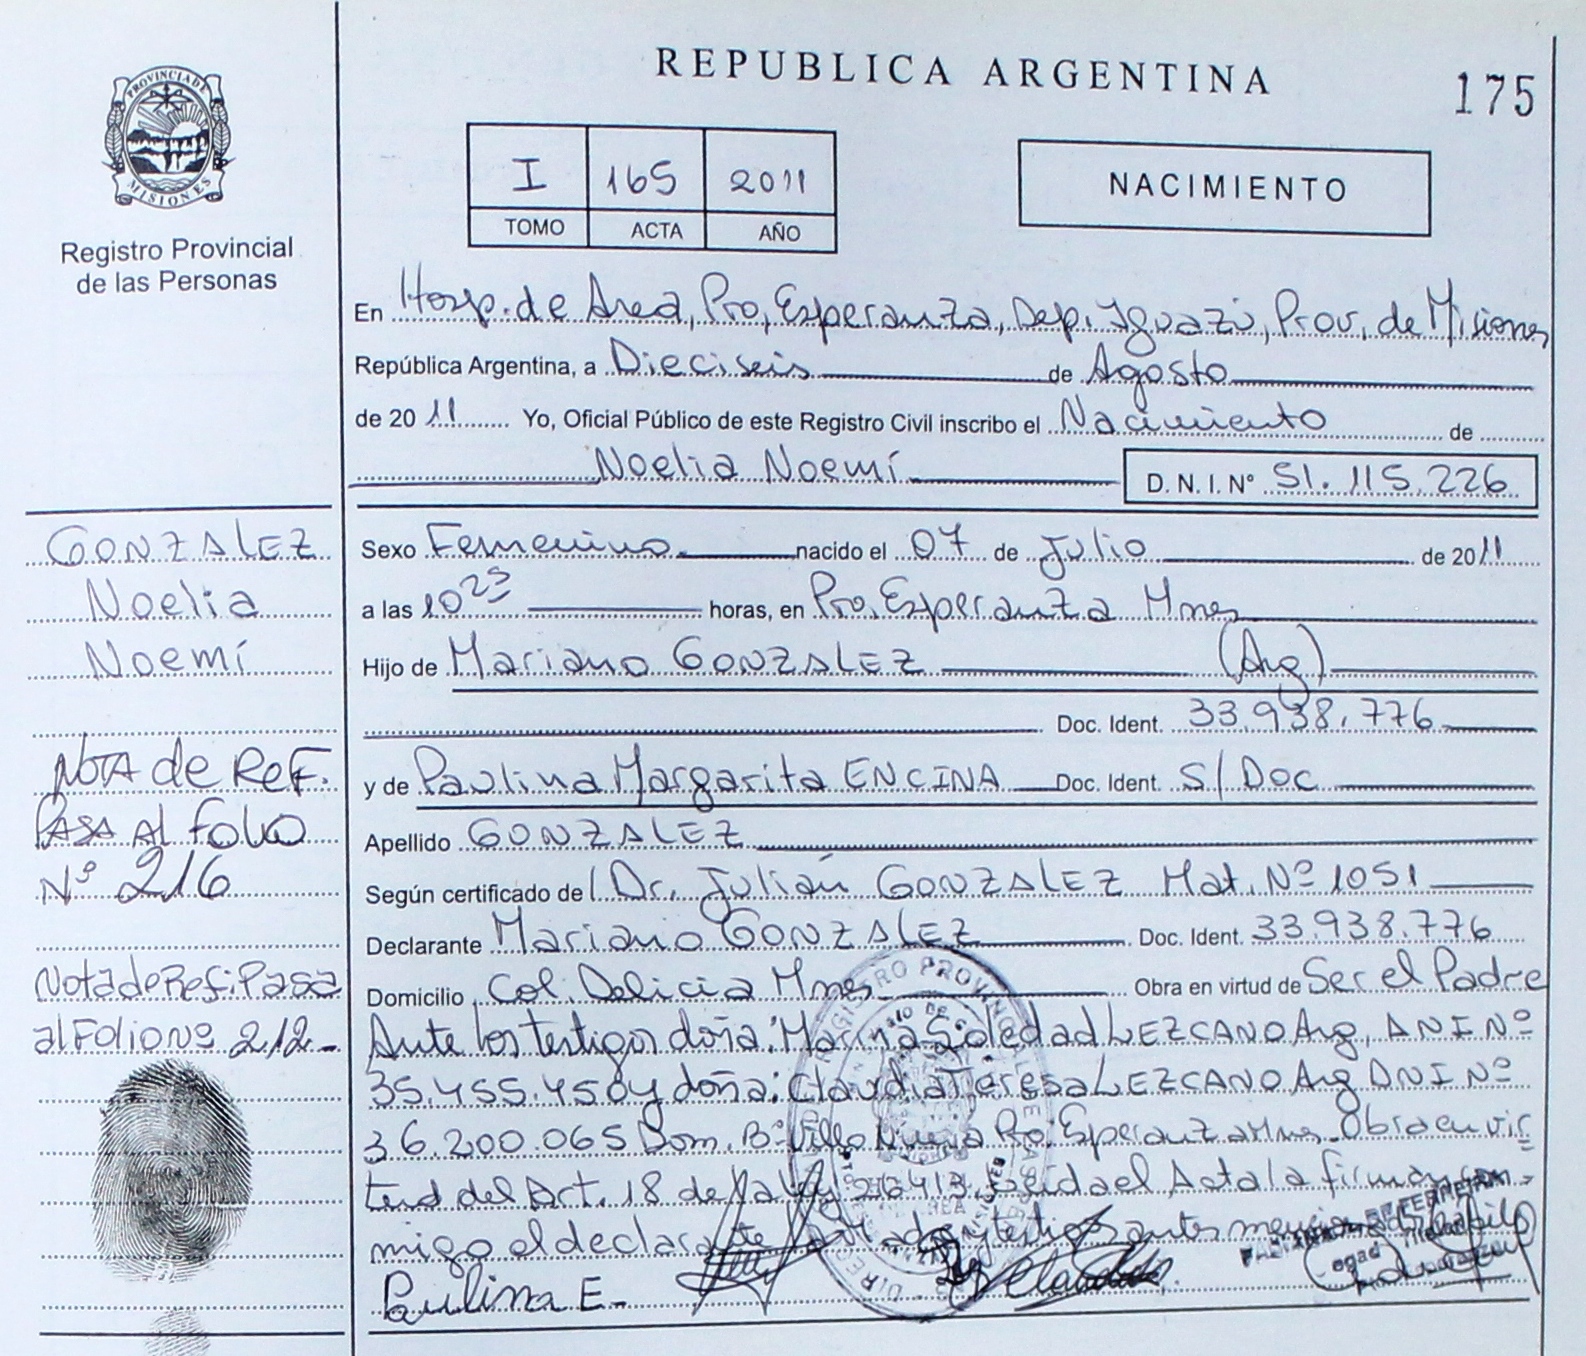 REPUBLICA ARGENTINA
175
PROVINCIA DE
MISIONES
Registro Provincial
de las Personas
I 165 2011
TOMO ACTA AÑO
NACIMIENTO
En Hosp. de Area, Pto, Esperanza, Dep. Iguazú, Prov. de Misiones
República Argentina, a Dieciseis de Agosto
de 2011 Yo, Oficial Público de este Registro Civil inscribo el Nacimiento de
Noelia Noemí D. N. I. N° 51.115.226
GONZALEZ
Noelia
Noemí
NOTA de ReF.
PASA Al Folio
Nº 216
Nota de Ref: Pasa
al Folio nº 212.-
Sexo Femenino nacido el 07 de Julio de 2011
a las 10 23 horas, en Pto. Esperanza Mnes
Hijo de Mariano GONZALEZ (Arg)
Doc. Ident. 33.938.776
y de Paulina Margarita ENCINA Doc. Ident. S/Doc
Apellido GONZALEZ
Según certificado de Dr. Julián GONZALEZ Mat. Nº 1051
Declarante Mariano GONZALEZ Doc. Ident. 33.938.776
Domicilio Col. Delicia Mnes Obra en virtud de Ser el Padre
Ante los testigos doña: Marina Soledad LEZCANO Arg, DNI Nº
35.455.450 y doña: Claudia Teresa LEZCANO Arg DNI Nº
36.200.065 Dom. Bº Villa Nueva Pto. Esperanza Mnes. Obra en vir
tud del Art. 18 de la Ley 26413. Leida el Acta la firman con-
migo el declarante y testigos antes mencionados
Paulina E.